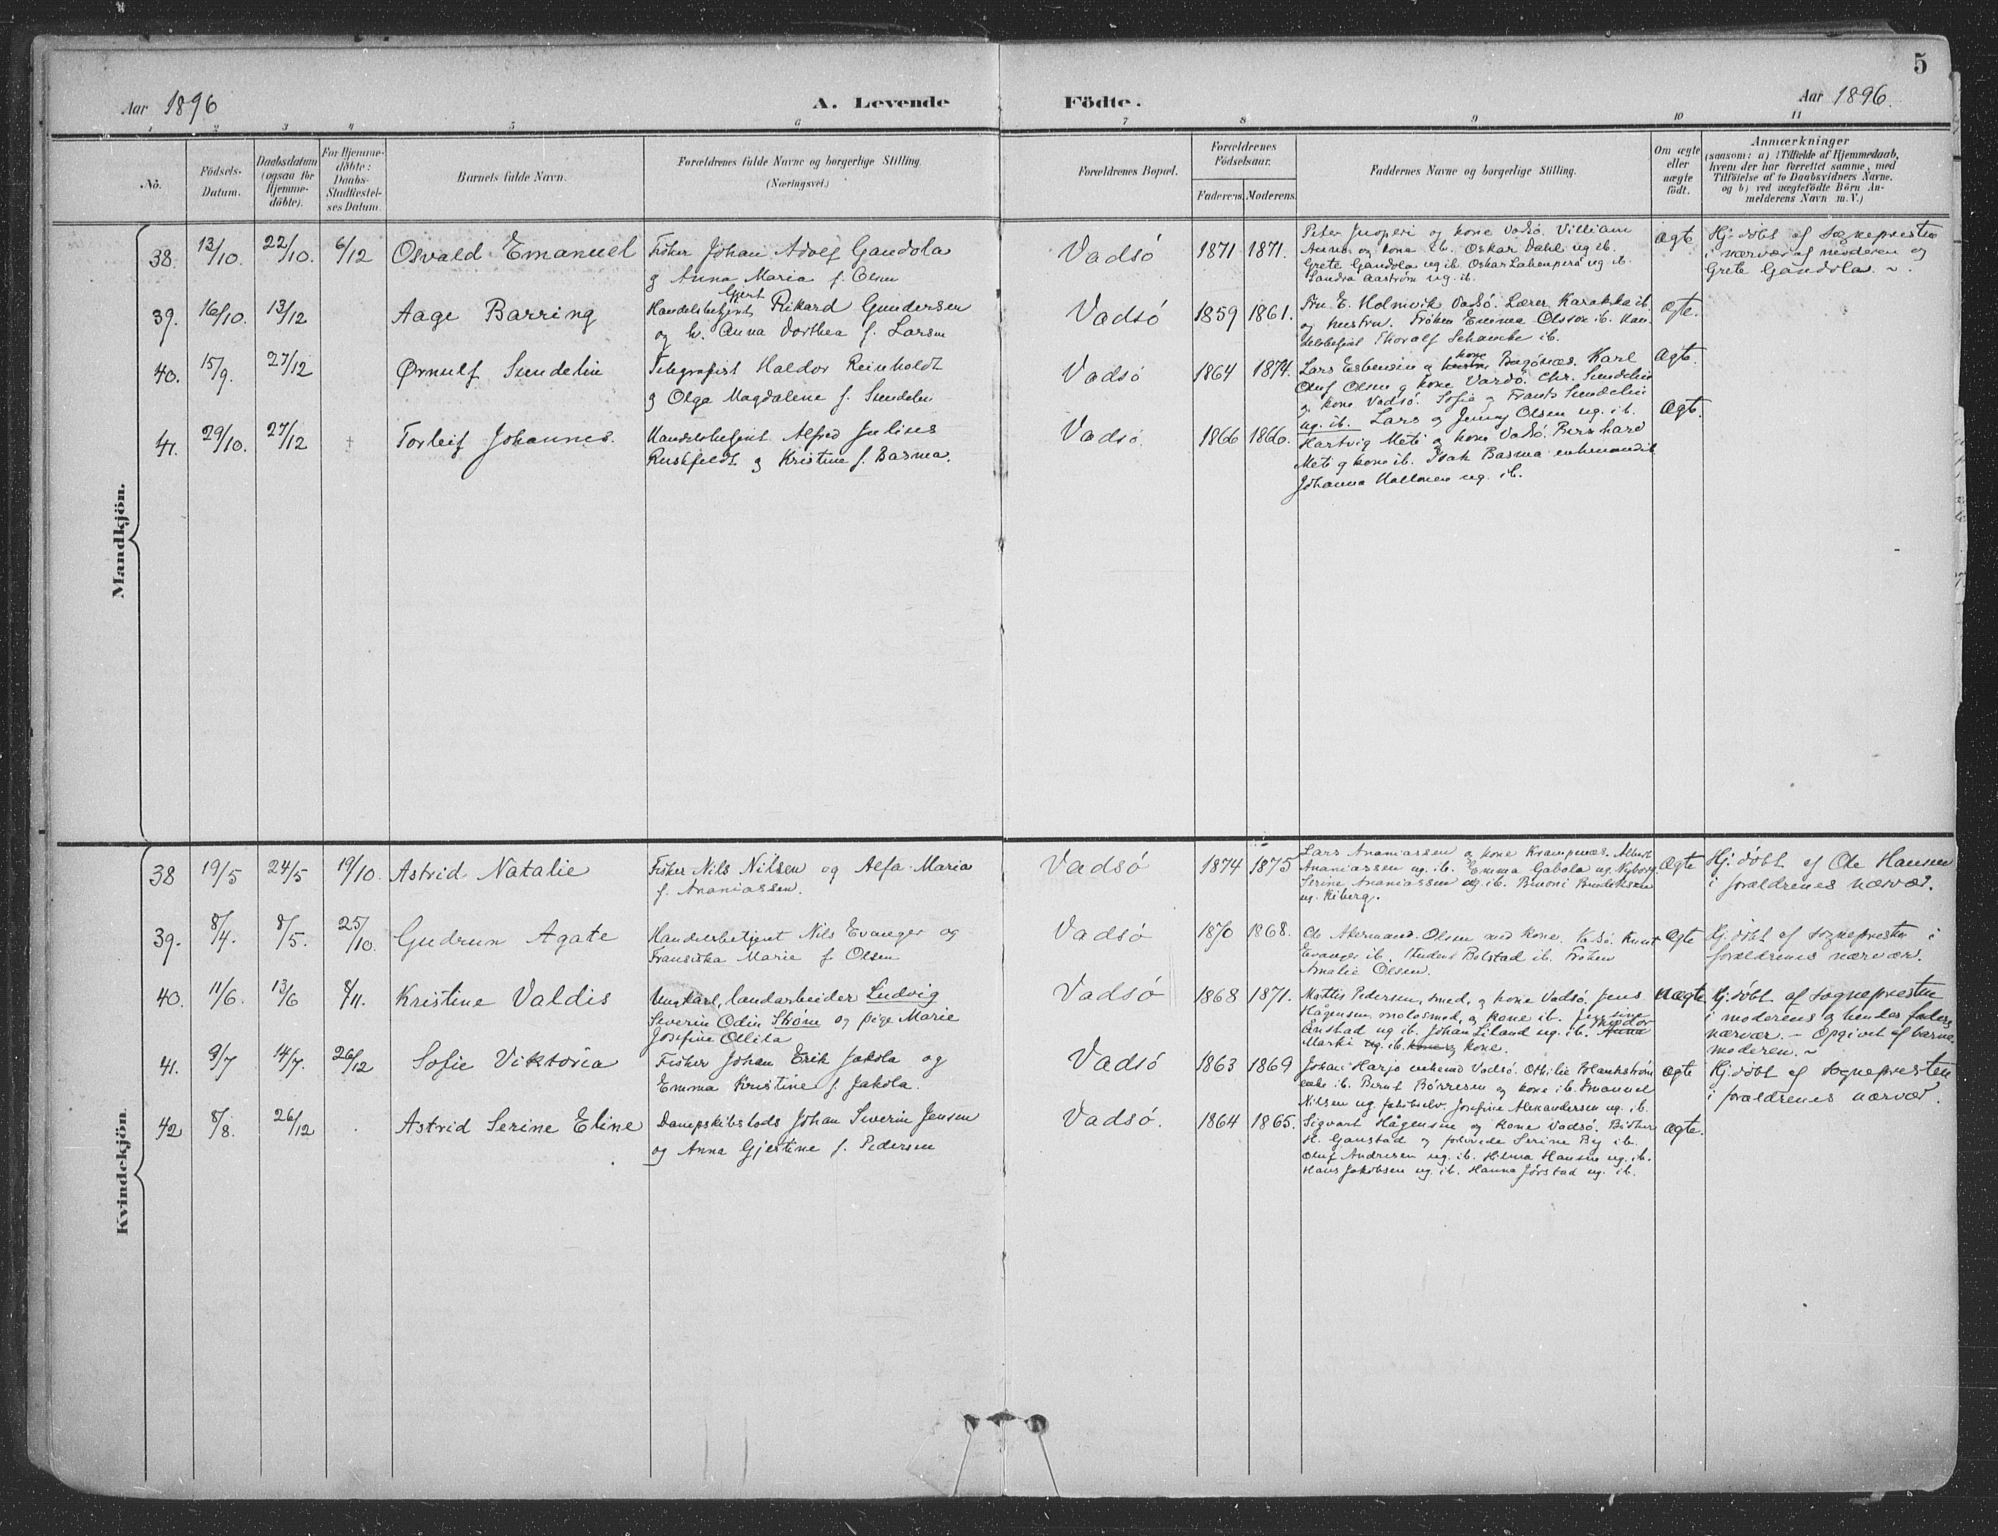 5
Aar 1896
A. Levende
Födte.
Aar 1896.
1 2 3 4 5 6 7 8 9 10 11
No.
Födsels-
Datum.
Daabsdatum
(ogsaa for
Hjemme-
döbte).
For Hjemme-
döbte:
Daabs-
Stadfæstel-
ses Datum.
Barnets fulde Navn.
Forældrenes fulde Navne og borgerlige Stilling.
(Næringsvei.)
Forældrenes Bopæl.
Forældrenes
Födselsaar.
Faderens. Moderens.
Faddernes Navne og borgerlige Stilling.
Om ægte
eller
uægte
födt.
Anmærkninger
(saasom: a) i Tilfælde af Hjemmedaab,
hvem der har forrettet samme, med
Tilföielse af to Daabsvidners Navne.
og b) ved uægtefödte Börn An-
melderens Navn m. V.)
Mandkjön.
38. 13/10. 22/10. 6/12 Osvald Emanuel
Fisker Johan Adolf Gandola
g Anna Maria f. Olsen
Vadsö 1871 1871.
og kone Vadsö. Villiam
og kone ib. Oskar Dahl ug ib.
Grete Gandola ug ib. Oskar ug ib.
Sandra Aaström ug. ib.
Ægte
Hj. döbt af Sognepresten
i nærvær af moderen og
Grete Gandola.
39. 16/10. 13/12 Aage Barring
Gjert
Handelsbetjent Rikard Gundersen
og h. Anna Dorthea f. Larsen
Vadsö 1859 1861.
Fru E. Holmvik Vadsö. Lærer Karakka ib
og hustru. Fröken Emma Olsson ib. Han-
delsbetjent Thoralf Schancke ib.
Ægte.
40. 15/9. 27/12 Ørnulf Sundelin
Telegrafist Haldor Reinholdt
g Olga Magdalene f. Sundelin
Vadsö 1864 1874.
kone
Lars Esbensen g Bugönæs. Karl
Oluf Olsen g kone Vardö. Chr. Sundelin
g kone Vadsö. Sofie g Frants Sundelin
ug. ib. Lars g Jenny Olsen ug. ib.
Ægte.
41. 29/10. 27/12 Torleif Johannes.
Handelsbetjent Alfred Julius
Ruskfeldt g Kristine f. Basma.
Vadsö 1866 1866.
Hartvig Meti g kone Vadsö. Bernhard
Meti g kone ib. Isak Basma enkemand ib
Johanna Hallonen ug. ib.
Ægte.
Kvindekjön.
38 19/5 24/5 19/10. Astrid Natalie
Fisker Nils Nilsen og Alfa Maria
f. Ananiassen.
Vadsö 1874 1875
Lars Ananiassen g kone Krampnæs. Albert
Ananiassen ug. ib. Emma Gabola ug. Nyborg
Serine Ananiassen ug ib.
ug. Kiberg.
Ægte
Hj. döbt af Ole Hansen
i forældrenes nærvær.
39. 8/4. 8/5. 25/10. Gudrun Agate
Handelsbetjent Nils Evanger og
Fransiska Marie f Olsen
Vadsö 1870 1868.
Ole Akermand Olsen med kone Vadsö. Knut
Evanger ib. Student Bolstad ib. Fröken
Amalie Olsen.
Ægte
Hj. döbt af sognepresten i
forældrenes nærvær.
40. 11/6. 13/6 8/11. Kristine Valdis
Ungkarl, landarbeider Ludvig
Severin Odin Ström og pige Marie
Josefine Ollila
Vadsö 1868 1871.
Mattis Pedersen, smed, g kone Vadsö. Jens
Hågensen, g kone ib.
Enstad ug ib. Johan Liland ug. ib. Theodor
Marki ug. ib. g kone.
Uægte
Hj. döbt af sognepresten
i moderens g hendes faders
nærvær. – Opgivet af barne-
moderen.
41. 9/7 14/7. 26/12 Sofie Viktoria
Fisker Johan Erik Jakola og
Emma Kristine f. Jakola.
Vadsö 1863 1869
Johan Harjo enkemd Vadsö. Othilie Blankström
enke ib. Bernt Börresen g kone ib. Emanuel
Nilsen ug. Jakobselv. Josefine Alexandersen ug. ib.
Ægte
Hj. döbt af sognepresten
i forældrenes nærvær.
42 8/8. 26/12 Astrid Serine Eline
Dampskibslods Johan Severin Jensen
og Anna Gjertine f. Pedersen
Vadsö. 1864 1865.
Sigvart Hågensen g kone Vadsö.
H. Ganstad g Serine By ib.
Oluf Andresen ug. ib. Hilma Hansen ug. ib.
Hans Jakobsen ug. ib. Hanna Jörstad ug. ib.
Ægte.